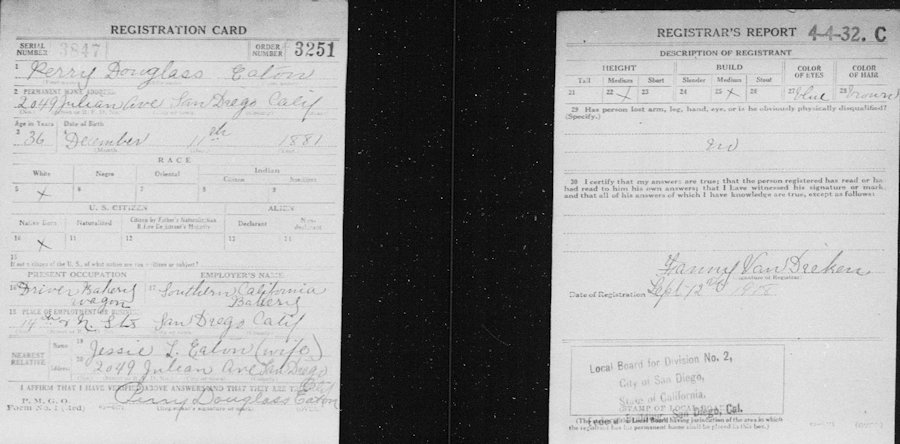 REGISTRATION CARD
SERIAL NUMBER 3847 ORDER NUMBER 3251
1 Perry Douglass Eaton
2 PERMANENT HOME ADDRESS:
2049 Julian Ave San Diego Calif
Age in Years Date of Birth
3 36 4 December 11th 1881
RACE
White Negro Oriental Indian
Citizen
5 X 6 7 8 9
U. S. CITIZEN ALIEN
Native Born Naturalized Citizen by Father's Naturalization Declarant Non-declarant
10 X 11 12 13 14
15
If not a citizen of the U. S., of what nation are you a citizen or subject?
PRESENT OCCUPATION EMPLOYER'S NAME
16 Driver Bakery wagon 17 Southern California Bakery
18 PLACE OF EMPLOYMENT OR BUSINESS:
19th & N. Sts San Diego Calif
NEAREST RELATIVE
Name 19 Jessie L. Eaton (wife)
Address 20 2049 Julian Ave San Diego
I AFFIRM THAT I HAVE VERIFIED ABOVE ANSWERS AND THAT THEY ARE TRUE
P. M. G. O.
Form No. 1 (Red) Perry Douglass Eaton
(Registrant's signature or mark)
REGISTRAR'S REPORT 4-4-32. C
DESCRIPTION OF REGISTRANT
HEIGHT BUILD COLOR OF EYES COLOR OF HAIR
Tall Medium Short Slender Medium Stout
21 22 X 23 24 25 X 26 27 Blue 28 Brown
29 Has person lost arm, leg, hand, eye, or is he obviously physically disqualified?
(Specify.)
no
30 I certify that my answers are true; that the person registered has read or has
had read to him his own answers; that I have witnessed his signature or mark,
and that all of his answers of which I have knowledge are true, except as follows:
Fanny Van Dieken
(Signature of Registrar)
Date of Registration Sept 12th 1918
Local Board for Division No. 2,
City of San Diego,
State of California.
(STAMP OF LOCAL BOARD)
Federal Building, San Diego, Cal.
(The stamp of the Local Board having jurisdiction of the area in which
the registrant has his permanent home shall be placed in this box.)